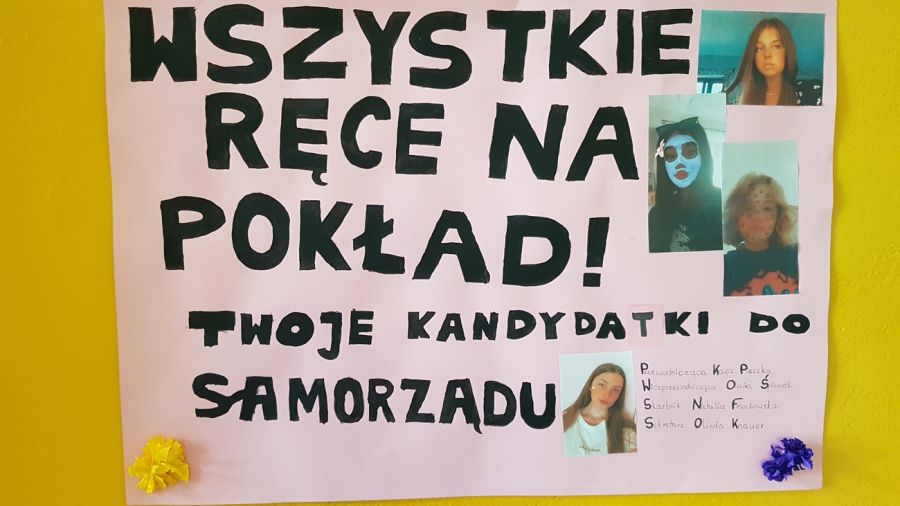 WSZYSTKIE
RĘCE NA
POKŁAD!
TWOJE KANDYDATKI DO
SAMORZĄDU
Przewodnicząca Kaya Pieczka
Wiceprzewodnicząca Oliwia Śniwak
Skarbnik Natalia Frankowska
Sekretarz Oliwia Knauer